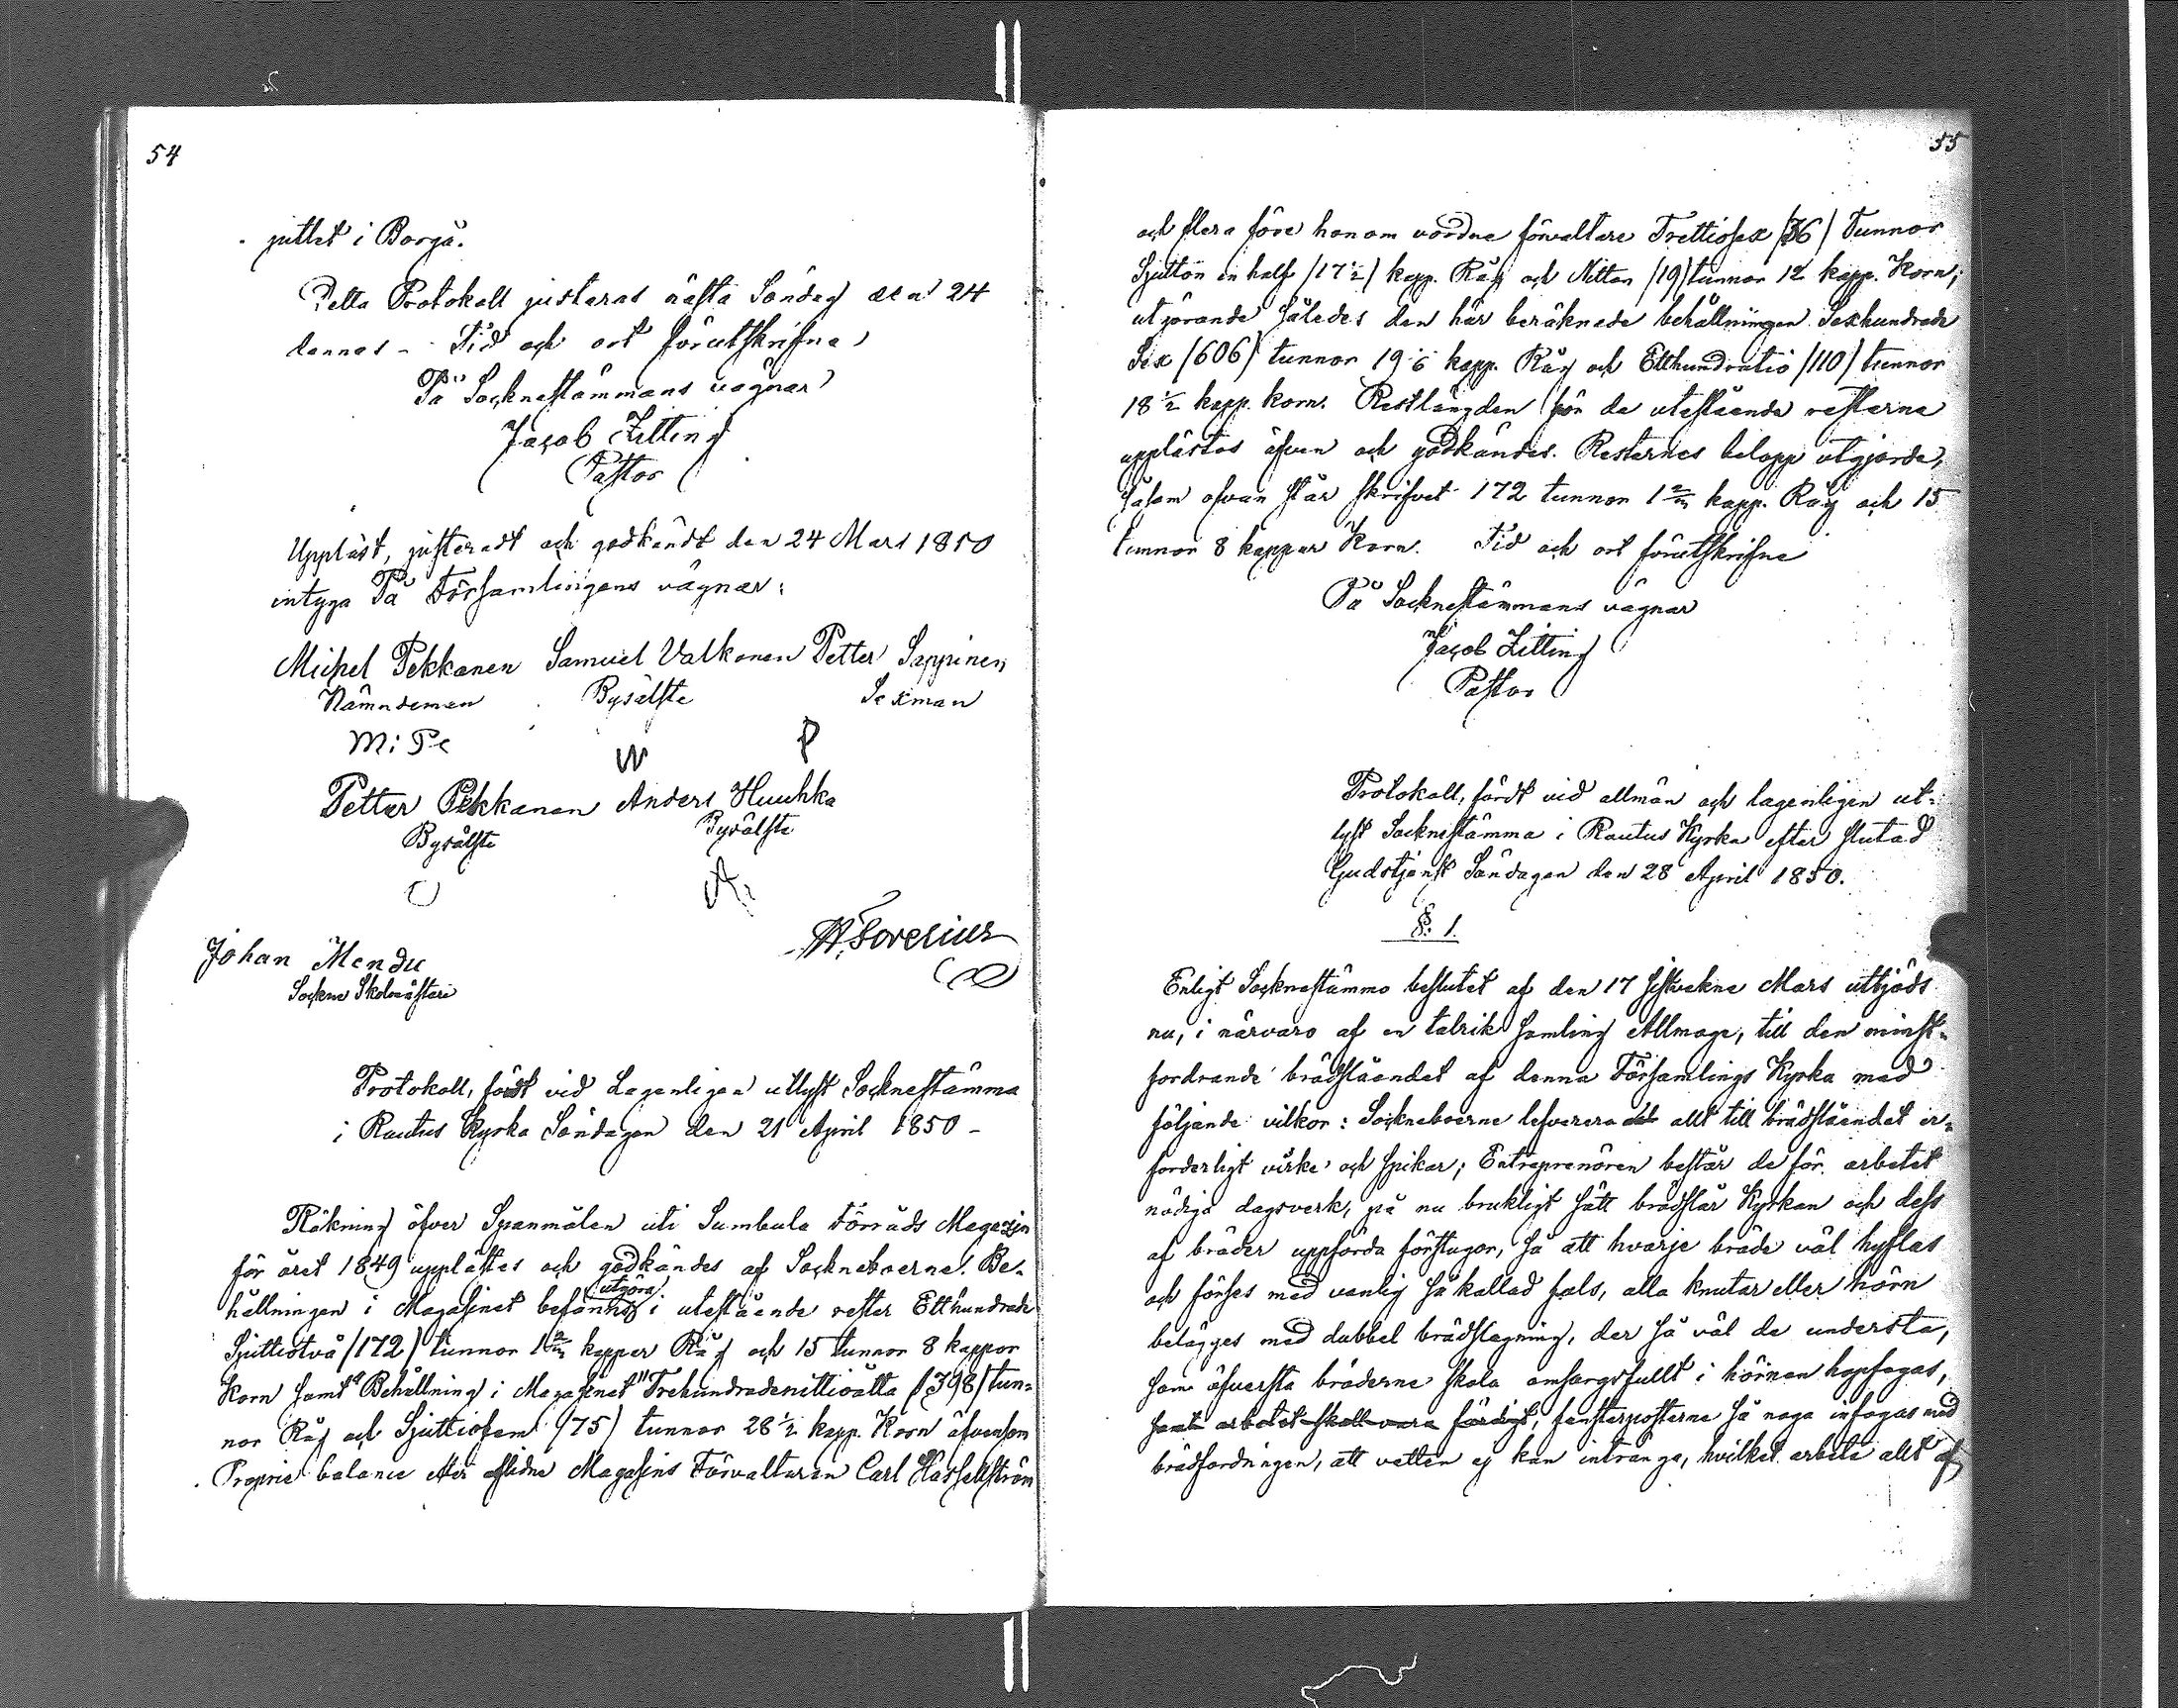 54
pittet i Borgå.
Detta Protokoll justeras nästa Söndag den 24
dennes – Tid och ort förutskrifne
På Socknestämmans vägnar
Jacob Zitting
Pastor
Uppläst, justeradt och godkändt den 24 Mars 1850
intyga På Församlingens vägnar:
Michel Pekkanen Samuel Valkonen Petter Sappinen
Nämndeman Byälste Sexman
M:Pe W P
Petter Pekkanen Anders Huuhka
Byälste Byälste
A:
Johan Mendu
Sockne Skolmästare
Protokoll, fördt vid Lagenligen utlyst Socknestämma
i Rautus Kyrka Söndagen den 21 April 1850 –
Räkning öfver Spanmålen uti Sumbula Förråds Magazin
för året 1849 upplästes och godkändes af Sockneboerne. Be-
utgöra
hållningen i Magasinet befanns i utestående rester Etthundrade
Sjuttiotvå /172/ tunnor 1 2/m kappar Råg och 15 tunnor 8 kappor
Korn samt "Behållning i Magasinet" Trehundradenittioåtta /398/ tun-
nor Råg och Sjuttiofem /75/ tunnor 28 1/2 kapp. Korn äfvensom
Proprie balance efter aflidne Magasins Förvaltaren Carl Hasselström
55
och flera före honom vordne förvaltare Trettiosex /36/ Tunnor
Sjutton en half /17 1/2/ kapp. Råg och Nitton /19/ tunnor 12 kapp. Korn;
utgörande således den här beräknade behållningen Sexhundrade
Sex /606/ tunnor 19 kapp. Råg och Etthundratio /110/ tunnor
18 1/2 kapp. korn. Restlängden för de utestående resterne
upplästes äfven och godkändes. Resternes belopp utgjorde,
såsom ofvan står skrifvet 172 tunnor 1 2/m kapp. Råg och 15
tunnor 8 kappar Korn. Tid och ort förutskrifne
På Socknestämmans vägnar
Jacob Zitting
Pastor
Protokoll, fördt vid allmän och lagenligen ut-
lyst Socknestämma i Rautus Kyrka efter slutad
Gudstjenst Söndagen den 28 April 1850.
§. 1.
Enligt Socknestämmo beslutet af den 17 sistvekne Mars utbjöds
nu, i närvaro af en talrik samling Allmoge, till den minst-
fordrande brädslåendet af denna Församlings Kyrka med
följande vilkor: Sockneboerne lefverera allt till brädslåendet er-
forderligt virke och spikar; Entreprenören består de för arbetet
nödiga dagsverk, på nu brukligt sätt brädslår Kyrkan och dess
af bräder uppförda förstugor, så att hvarje bräde väl hyflas
och förses med vanlig så kallad fals, alla knutar eller hörn
belägges med dubbel brädslagning, der så väl de understa,
som öfversta bräderne skola omsorgsfullt i hörnen hopfogas,
samt arbetet skall vara färdigt, fensterposterne så noga infogas med
brädfordningen, att vatten ej kan intränga, hvilket arbete allt af